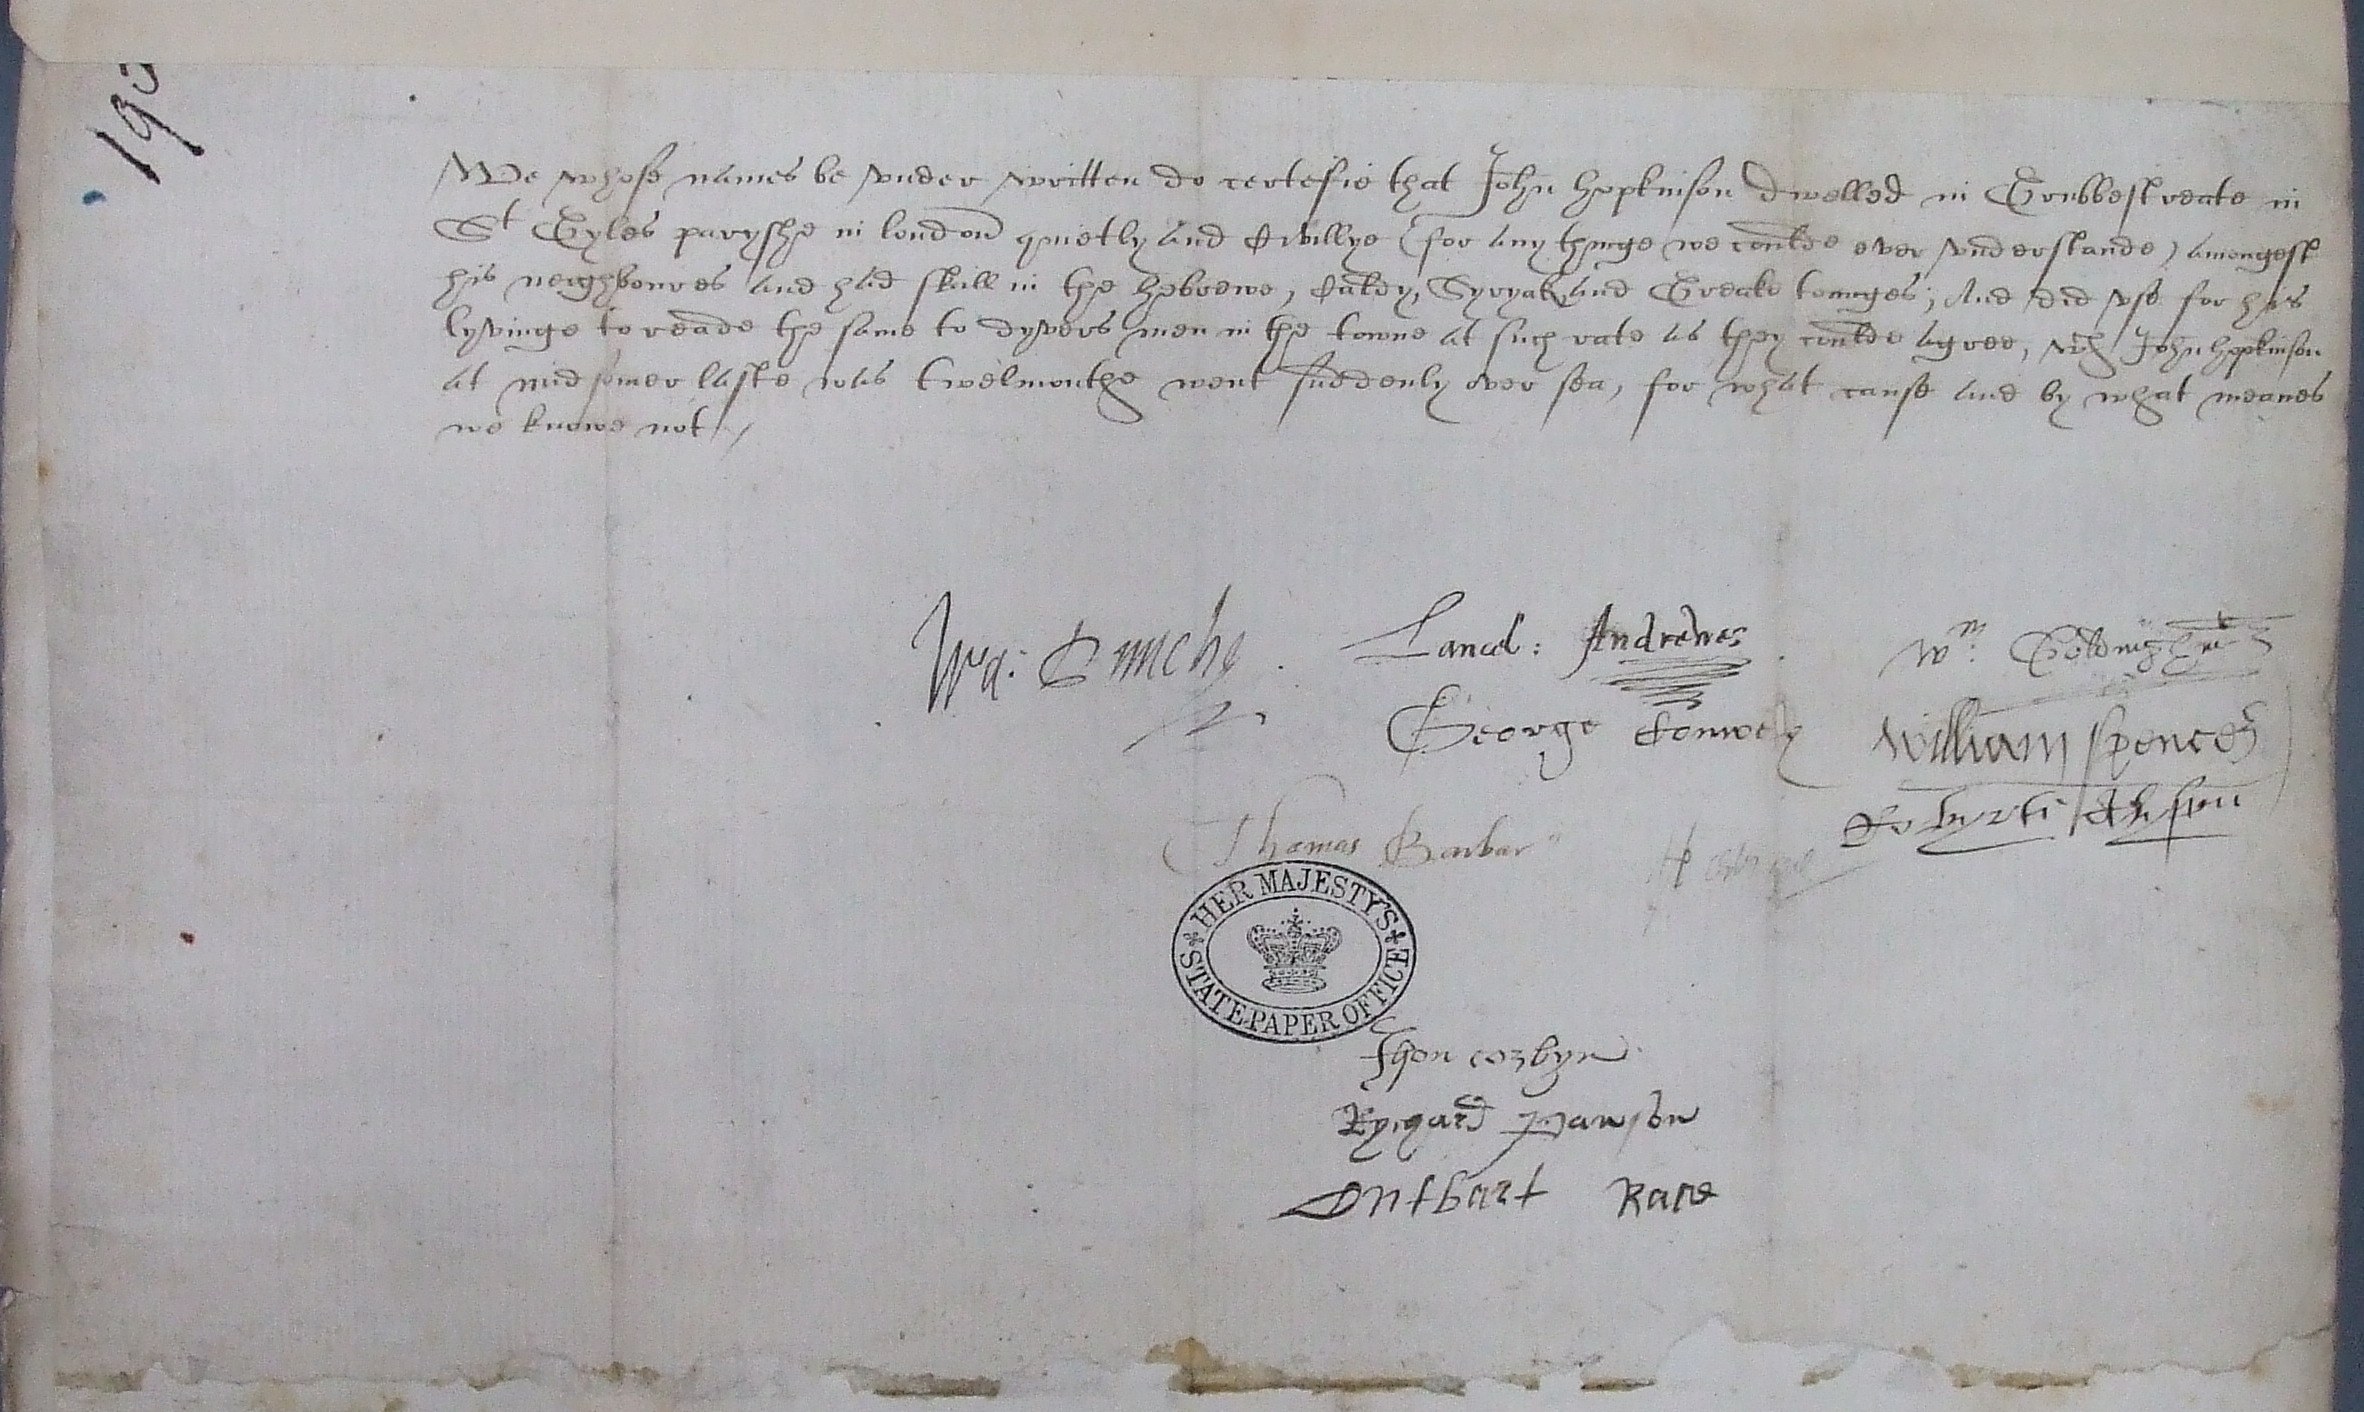 193
We whose names be vnder written do certefie that John Hopkinson dwelled in Grubbestreate in
St Gyles paryshe in London quietly and Civillye (for any thinge we coulde ever vnderstande) amongest
his neighboures and had skill in the hebrewe, Caldy, Syryak, and Greake tounges; And did vse for his
lyvinge to reade the same to dyvers men in the towne at such rate as they coulde agree, wch John Hopkinson
at midsomer laste was twelmonthe went suddenly over sea, for what cause and by what meanes
we knowe not
Lancel: Andrewes
Wm
George Conwey
William Spencer
Thomas Barbar
HER MAJESTY'S
STATE PAPER OFFICE
Jhon corbyn
Rychard Pawson
Cutbart Race